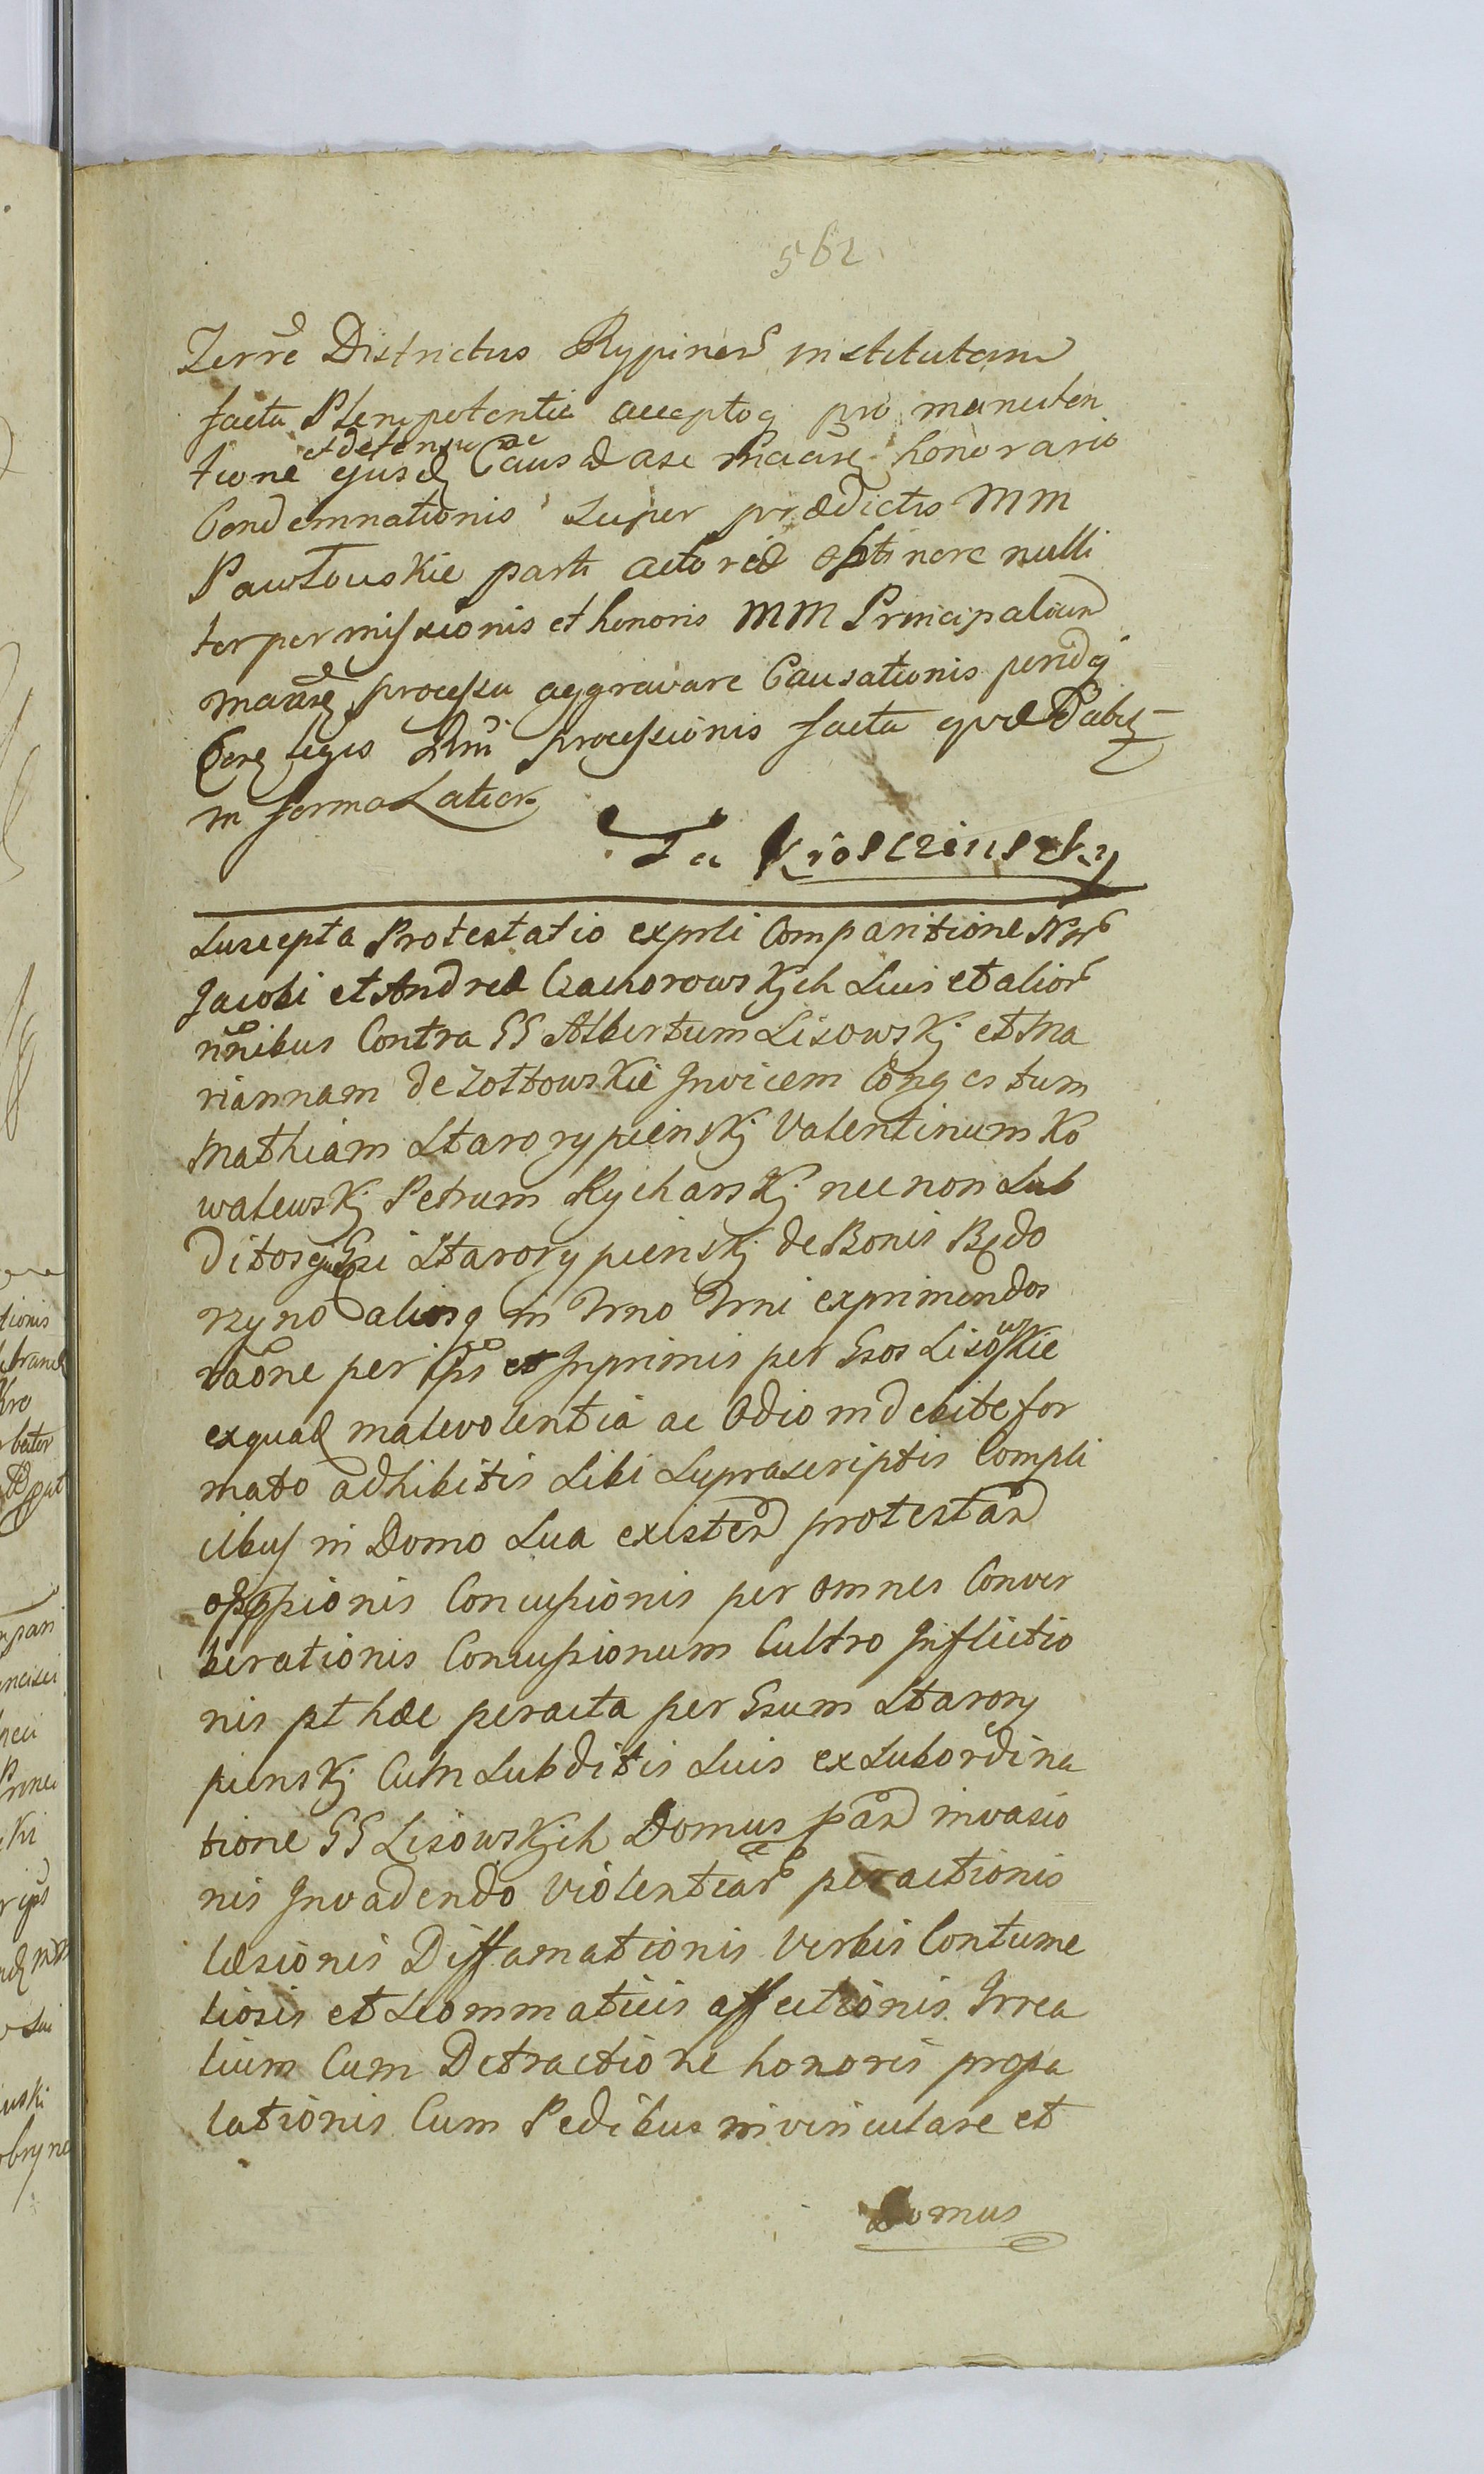 562
Terrē Districtus Rypinen institutam
facta Plenipotentia acceptoq pro manuten
et defensa
tione ejusd Causæ a se honorario
Condemnationis super prædictis MM
Pawłouskie parti actoreæ obtinere nulli
ter permissionis et honoris MM Principalium
processu aggravare Causationis
legis processionis facta quæ Dabit
in forma Latiori
Suscepta Protestatio exprli Comparitione
Jacobi et Andreæ Czachorowskich Suis et alior
nnibus Contra GG Albertum Lisowskj et Ma
riannam de Zołtowskie Invicem Congestum
Mathiam Starorypienskj Valentinum Ko
walewskj Petrum Rycharskj nec non Sub
ditos Gsi Starorypienskj de Bonis Rędo
rzyno aliosq in Trno Trni exprimendos
raōne per ipōs et Inprimis per Gsos Lisowskie
ex quad malevolentia ac Odio indebite for
mato adhibitis Sibi Supra scriptis Compli
cibus in Domo Sua existen protestan
Concussionis per omnes Conver
berationis Concussionum Cultro Inflictio
nis pt hæc peracta per Gsum Starory
pienskj Cum Subditis Suis ex Subordina
tione GG Lisowskich Domus pan invasio
nis Invadendo Violentiar peractionis
læsionis Diffamationis Verbis Contume
liosis et Scommaticis affectionis Irrea
lium Cum Detractione honoris propa
lationis Cum Pedibus invinculare et
Domus